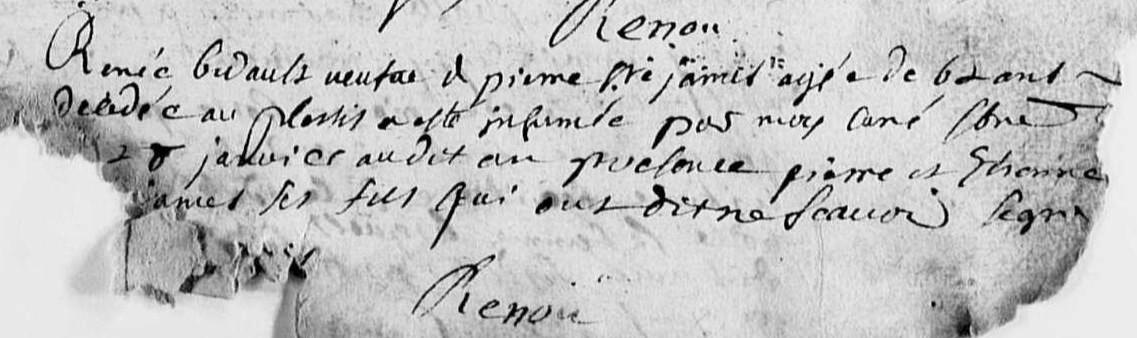 Renou
Renée bidault veufue de pierre james agée de 62 ans
decedée au plessis a esté inhumée par moy curé sbne
28 janvier audit an presence pierre et Etienne
james ses fils qui ont dit ne scavoir segn
Renou